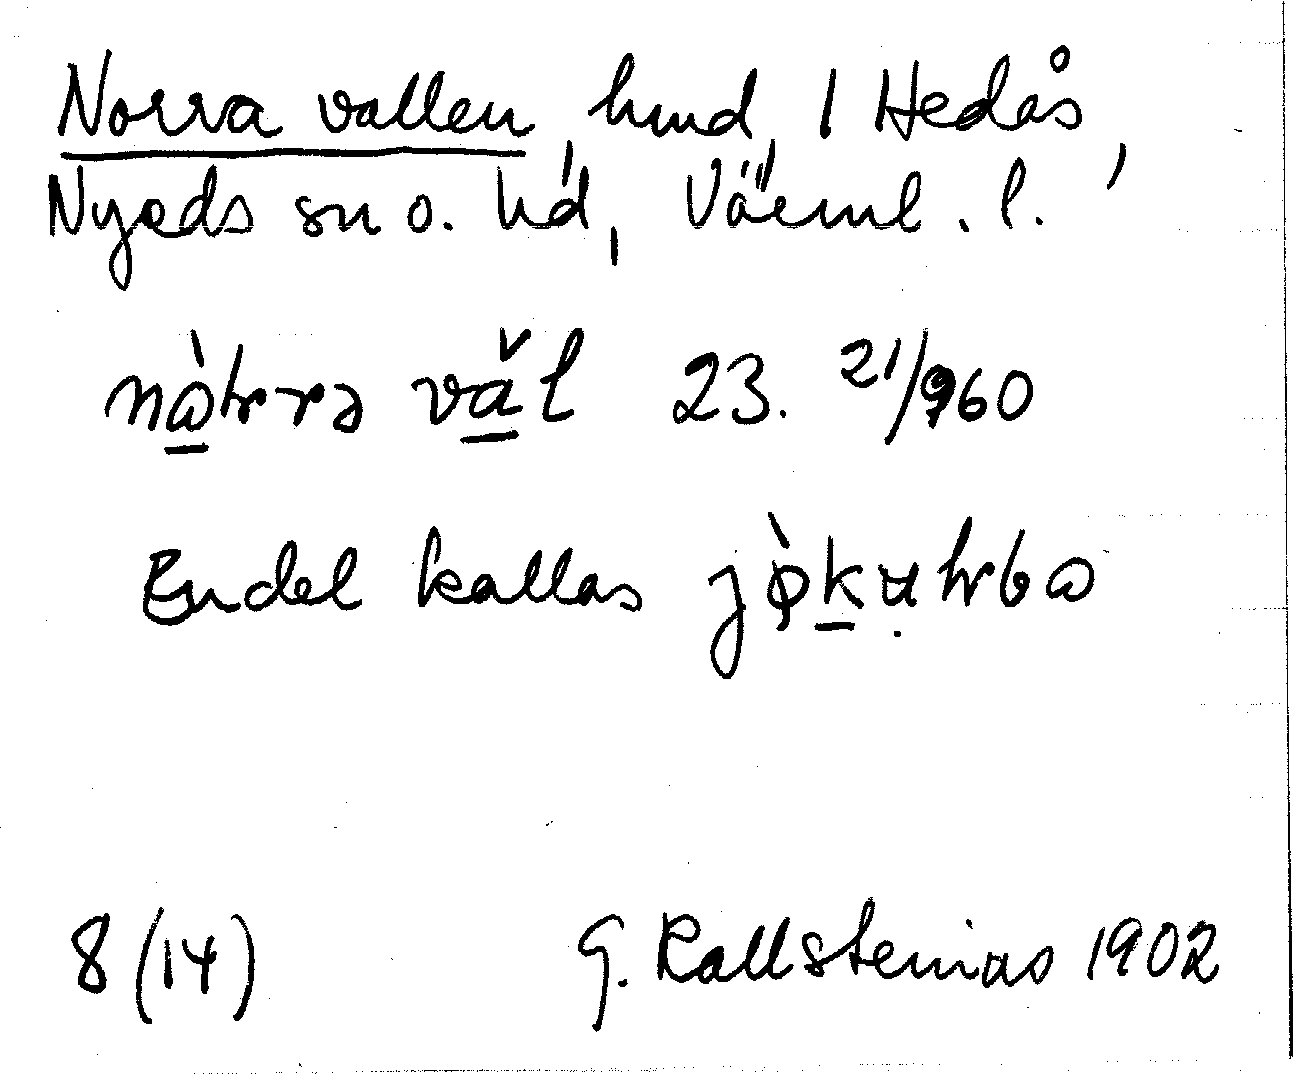 Norra vallen, hmd, 1 Hedås,
Nyeds sn o. hd, Värml. l.
vǎl 23. 21/960
Endel kallas
8 (14) G. Kallstenius 1902